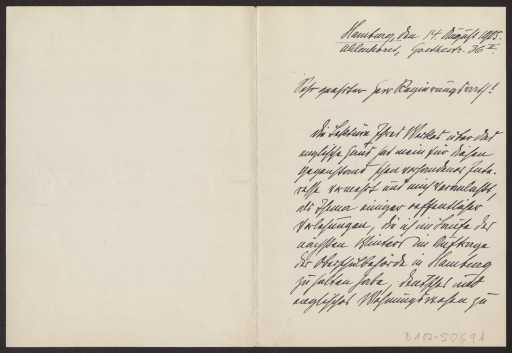 Hamburg, den 14. August 1905.
Uhlenhorst, Goethestr. 36 II.
Sehr geehrter Herr Regierungsrath!
Die Lektüre Ihres Werkes über das
englische Haus hat mein für diesen
Gegenstand schon vorhandenes Inte-
resse vermehrt und mich veranlaßt,
als Thema einiger oeffentlicher
Vorlesungen, die ich im Laufe des
nächsten Winters im Auftrage
der Oberschulbehörde in Hamburg
zu halten habe, deutsches und
englisches Wohnungswesen zu
D 102-5069